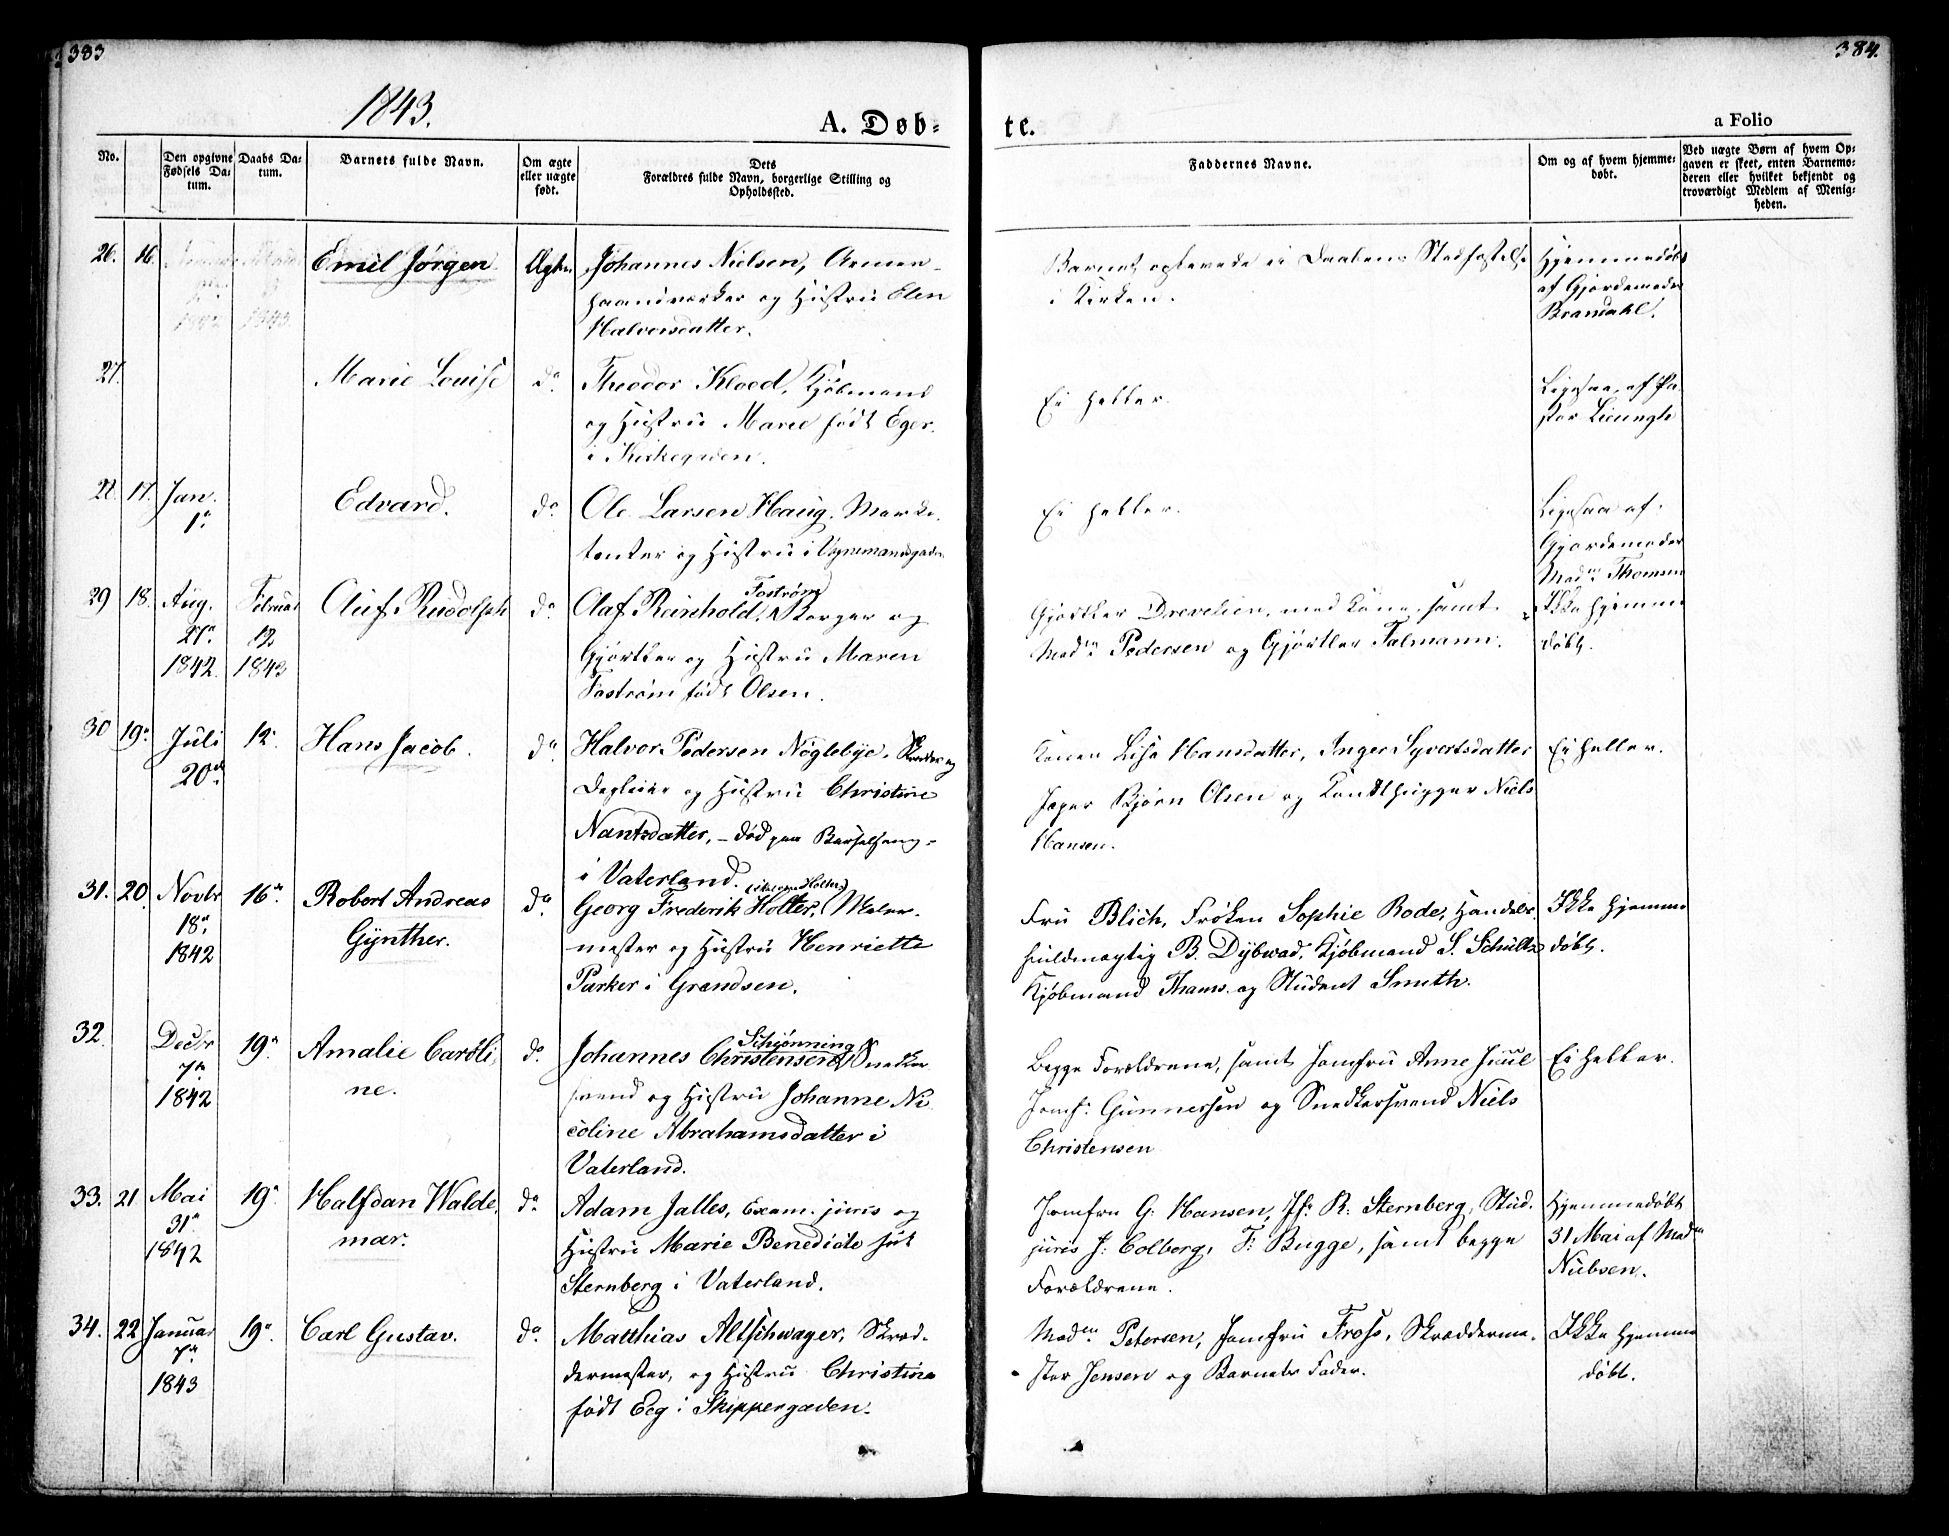 383
384.
1843.
A. Døb-
te.
a Folio
No.
Den opgivne Fødsels Da-
tum.
Daabs Da-
tum.
Barnets fulde Navn.
Om ægte
eller uægte
født.
Dets
Forældres fulde Navn, borgerlige Stilling og
Opholdssted.
Faddernes Navne.
Om og af hvem hjemme-
døbt.
Ved uægte Børn af hvem Op-
gaven er skeet, enten Barnemo-
deren eller hvilket bekjendt og
troværdigt Medlem af Menig-
heden.
26. 16. Emil Jørgen. Ægte.
1842 1843
Johannes Nielsen,
haandværker og Hustru Elen
Halvorsdatter.
Barnet i Daabens Stadfæstelse
i Kirken.
Hjemmedøbt
af Gjordemoder
Bramdahl.
27. Marie Louise do
Theodor Kloed, Kjøbmand
og Hustru Marie født Eger.
i Kirkegaden.
Ei heller.
Ligesaa af Pa-
stor
28. 17. Jan.
1ste
Edvard. do
Ole Larsen Haug, Marke-
tenter og Hustru i Vognmandsgaden
Ei heller.
Ligesaa af
Gjordemoder
Madm Thomsen
29 18. Aug. 27de 1842. Februar 12 1843
Oluf Rudolph do
Fostrøm
Olaf Reinhold, Korger og
Gjørtler og Hustru Maren
Fostrøm født Olsen.
Gjørtler Drevelien, med Kone, samt
Madm Pedersen og Gjørtler Talmann.
Ikke hjemme
døbt.
30 19. Juli 20de 12. Hans Jacob. do
Halvor Pedersen Nøglebye,
Dagleier og Hustru Christine
Nantsdatter, – død paa Barselseng –
i Vaterland.
Konen Lise Hansdatter, Inger Syvertsdatter
Jæger Bjørn Olsen og Niels
Hansen.
Ei heller.
31. 20. Novbr 18de 1842 16de
Robert Andreas
Gynther. do
Georg Frederik Holter, Maler-
mester og Hustru Henriette
Parker i Grændsen.
Fru Blich, Frøken Sophie Rode, Handels-
fuldmægtig B. Dybwad, Kjøbmand S. Schultz
Kjøbmand Thams og Student Smith.
Ikke hjemme
døbt.
32. Decbr 7de 1842 19de
Amalie Caroli-
ne. do
Schjønning
Johannes Christensen, Snedker
svend og Hustru Johanne Ni
coline Abrahamsdatter i
Vaterland.
Begge Forældrene, samt Jomfru Anne Juul
Jomf: Gunnersen og Snedkersvend Niels
Christensen
Ei heller.
33. 21 Mai 31te 1842 19de
Halfdan Walde-
mar. do
Adam Jalles, Exam. juris og
Hustru Marie Benedicte født
Sternberg i Vaterland.
Jomfru G. Hansen, Jfr. R. Sternberg, Stud.
juris J. Colberg, F. Bugge, samt begge
Forældrene.
Hjemmedøbt
31 Mai af Madm
Nielsen.
34. 22 Januar 7de 1843 19de
Carl Gustav. do
Matthias Altschwager, Skræd-
dermester, og Hustru Christine
født Eeg i Skippergaden.
Madm Petersen, Jomfru Frost, Skrædderme-
ster Jensen og Barnets Fader.
Ikke hjemme
døbt.